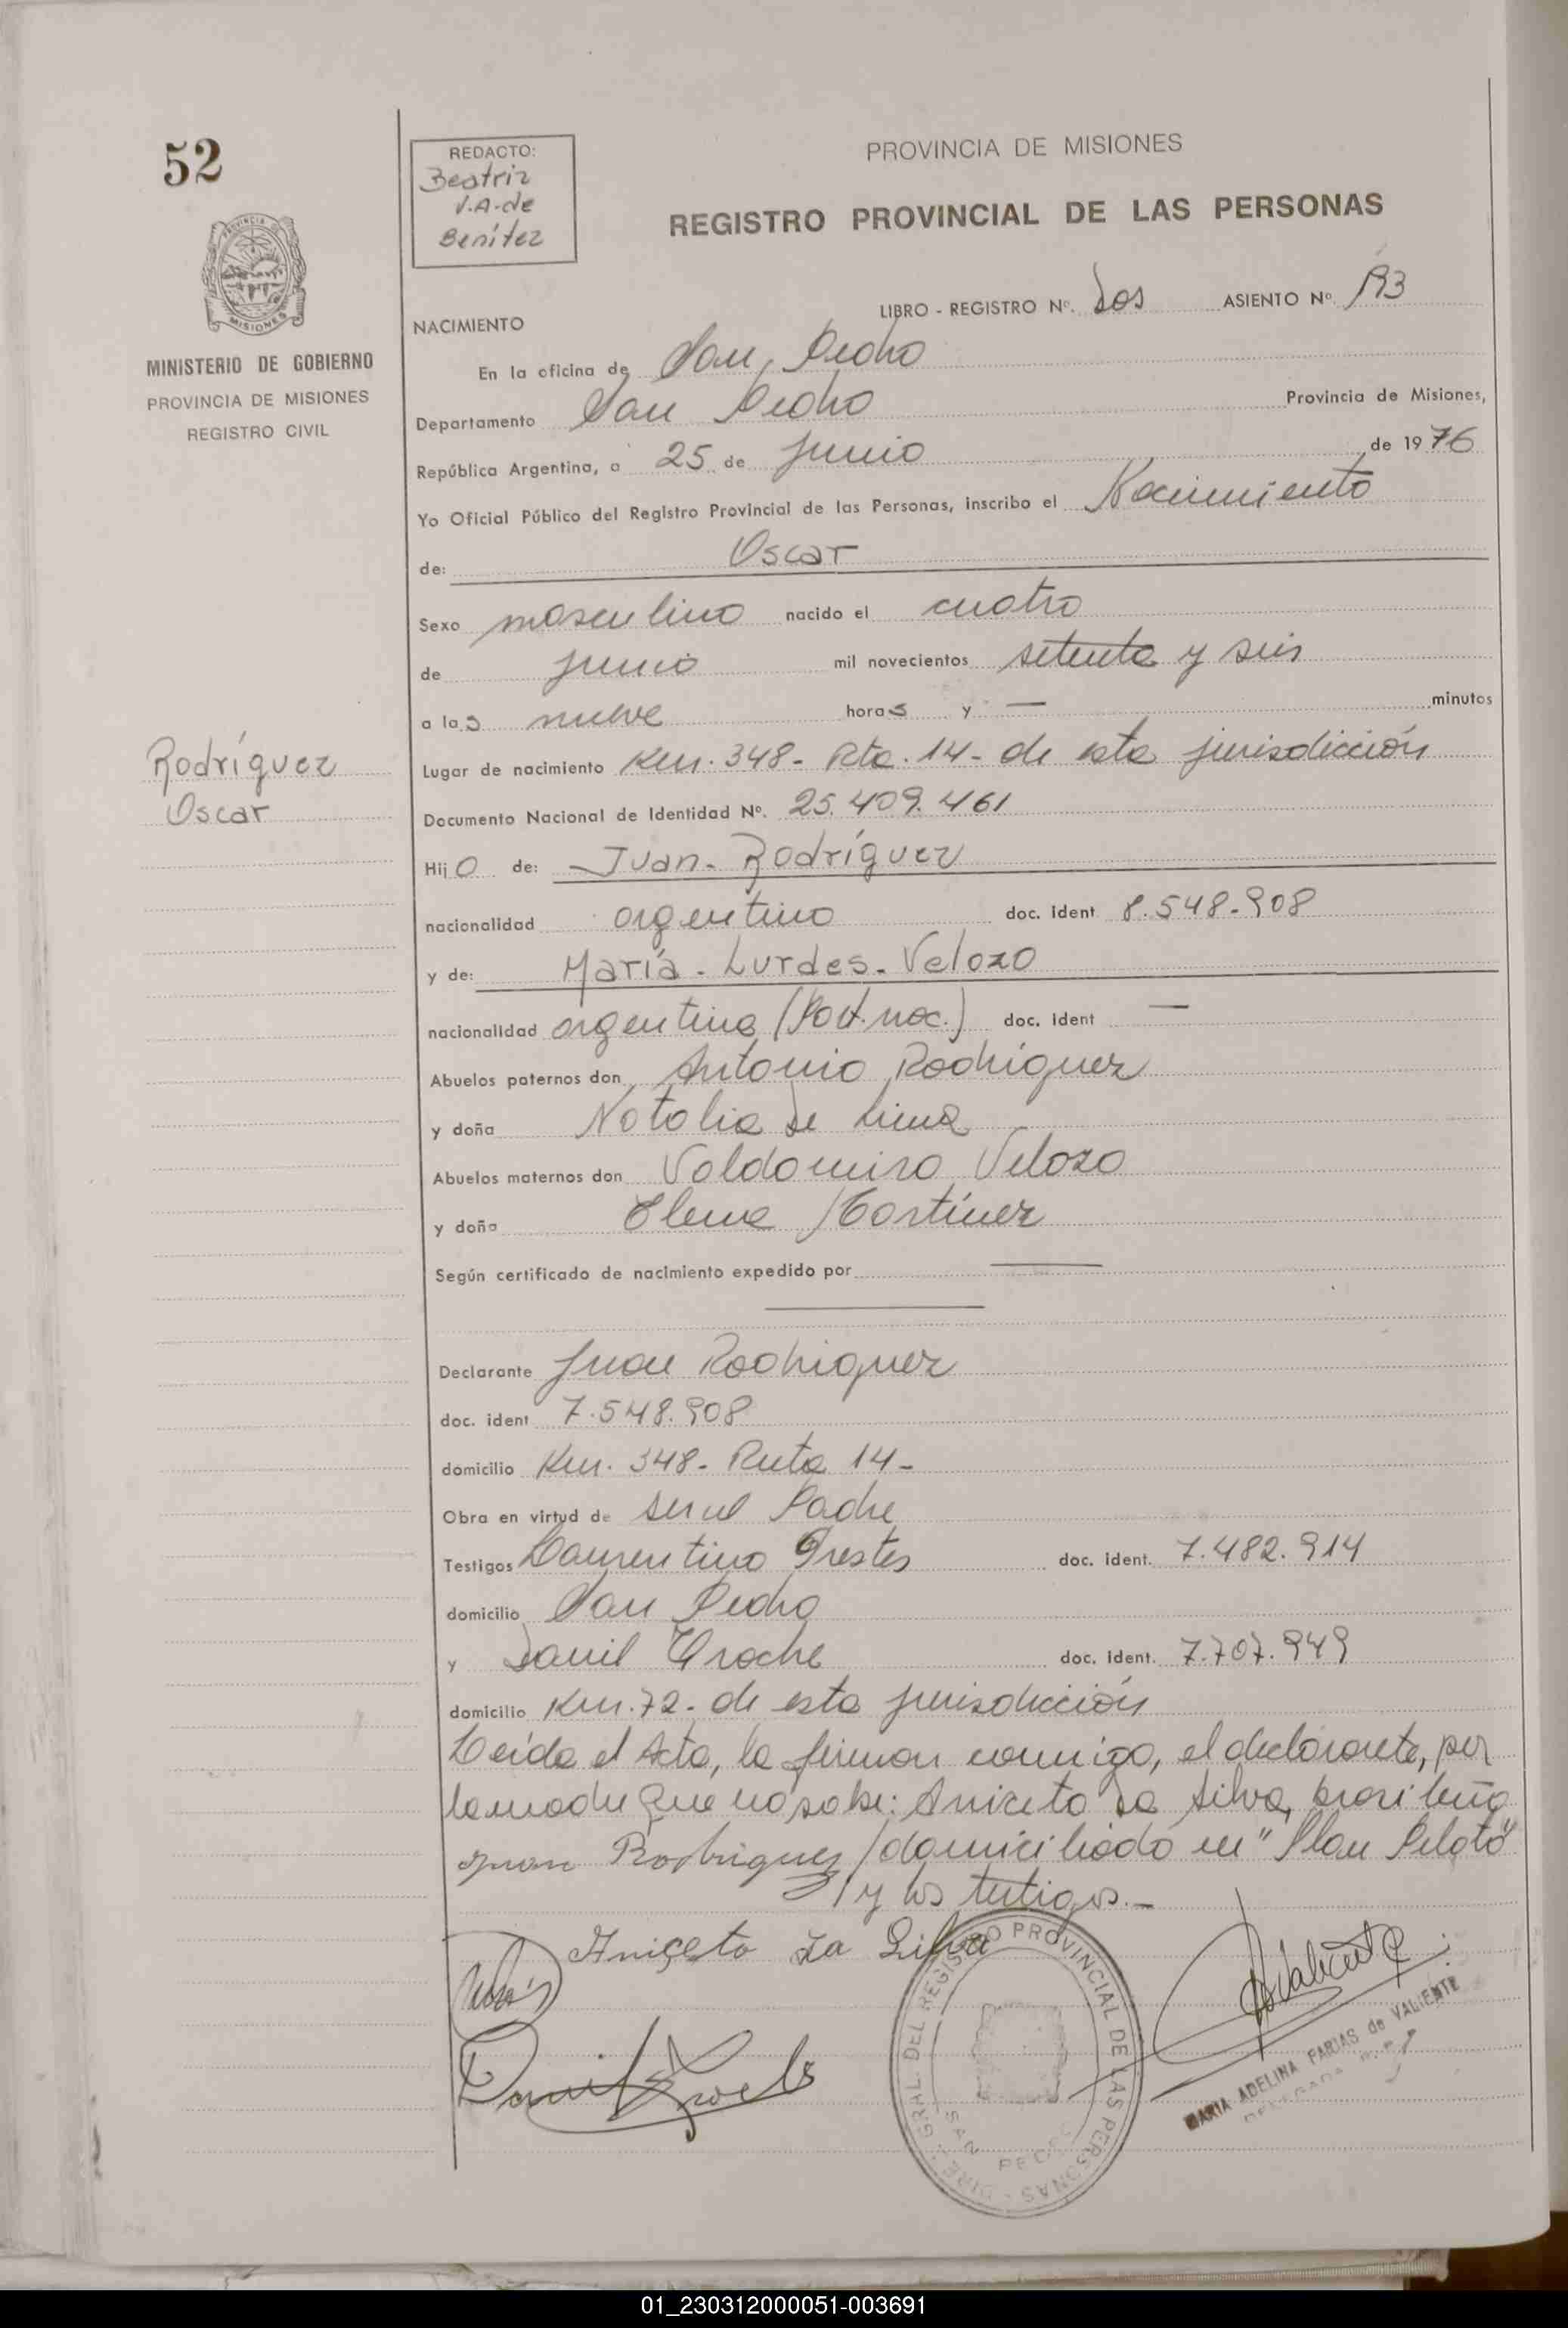 52
REDACTO:
Beatriz
V.A. de
Benítez
PROVINCIA DE MISIONES
REGISTRO PROVINCIAL DE LAS PERSONAS
MISIONES
MINISTERIO DE GOBIERNO
PROVINCIA DE MISIONES
REGISTRO CIVIL
LIBRO - REGISTRO Nº. Dos ASIENTO Nº. 193
NACIMIENTO
En la oficina de San Pedro
Departamento San Pedro Provincia de Misiones,
República Argentina, a 25 de Junio de 1976
Yo Oficial Público del Registro Provincial de las Personas, inscribo el Nacimiento
de: Oscar
Sexo masculino nacido el cuatro
de Junio mil novecientos setenta y seis
a las nueve horas y — minutos
Rodríguez
Oscar
Lugar de nacimiento Km. 348- Rta. 14- de esta jurisdicción
Documento Nacional de Identidad Nº. 25.409.461
Hijo de: Juan- Rodríguez
nacionalidad argentino doc. ident 8.548.908
y de: María - Lurdes - Velozo
nacionalidad argentina (Part. nac.) doc. ident —
Abuelos paternos don Antonio Rodriguez
y doña Natalia de Lima
Abuelos maternos don Valdomiro Velozo
y doña Elena Martínez
Según certificado de nacimiento expedido por —
Declarante Juan Rodriguez
doc. ident 7.548.908
domicilio Km. 348- Ruta 14-
Obra en virtud de ser el Padre
Testigos Laurentino Prestes doc. ident. 7.482.914
domicilio San Pedro
y Danil Troche doc. ident. 7.707.949
domicilio Km. 72- de esta jurisdicción
Leída el Acta, la firman conmigo, el declarante, por
la madre que no sabe: Aniceto Da Silva, brasileño
Juan Rodriguez /domiciliado en "Plan Piloto"
/y los testigos.—
Aniçeto Da Silva
DIRE. GRAL. DEL REGISTRO PROVINCIAL DE LAS PERSONAS
SAN PEDRO
MARIA ADELINA FARIAS de VALIENTE
DELEGADA
01_230312000051-003691